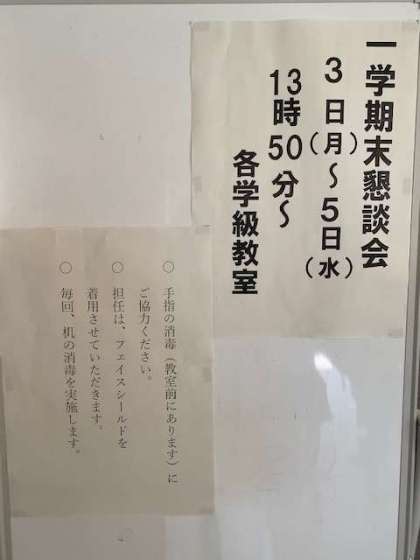 一学期末懇談会
3日(月)〜5日(水)
13時50分〜
各学級教室
○ 手指の消毒(教室前にあります)に
ご協力ください。
○ 担任は、フェイスシールドを
着用させていただきます。
○ 毎回、机の消毒を実施します。